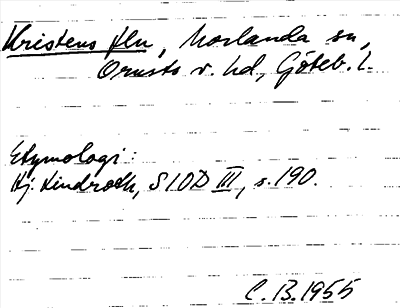 Kristens fln, Morlanda sn,
Orusts v. hd, Göteb. l.
Etymologi:
Hj. Lindroth, SIOD III, s. 190.
C. B. 1955